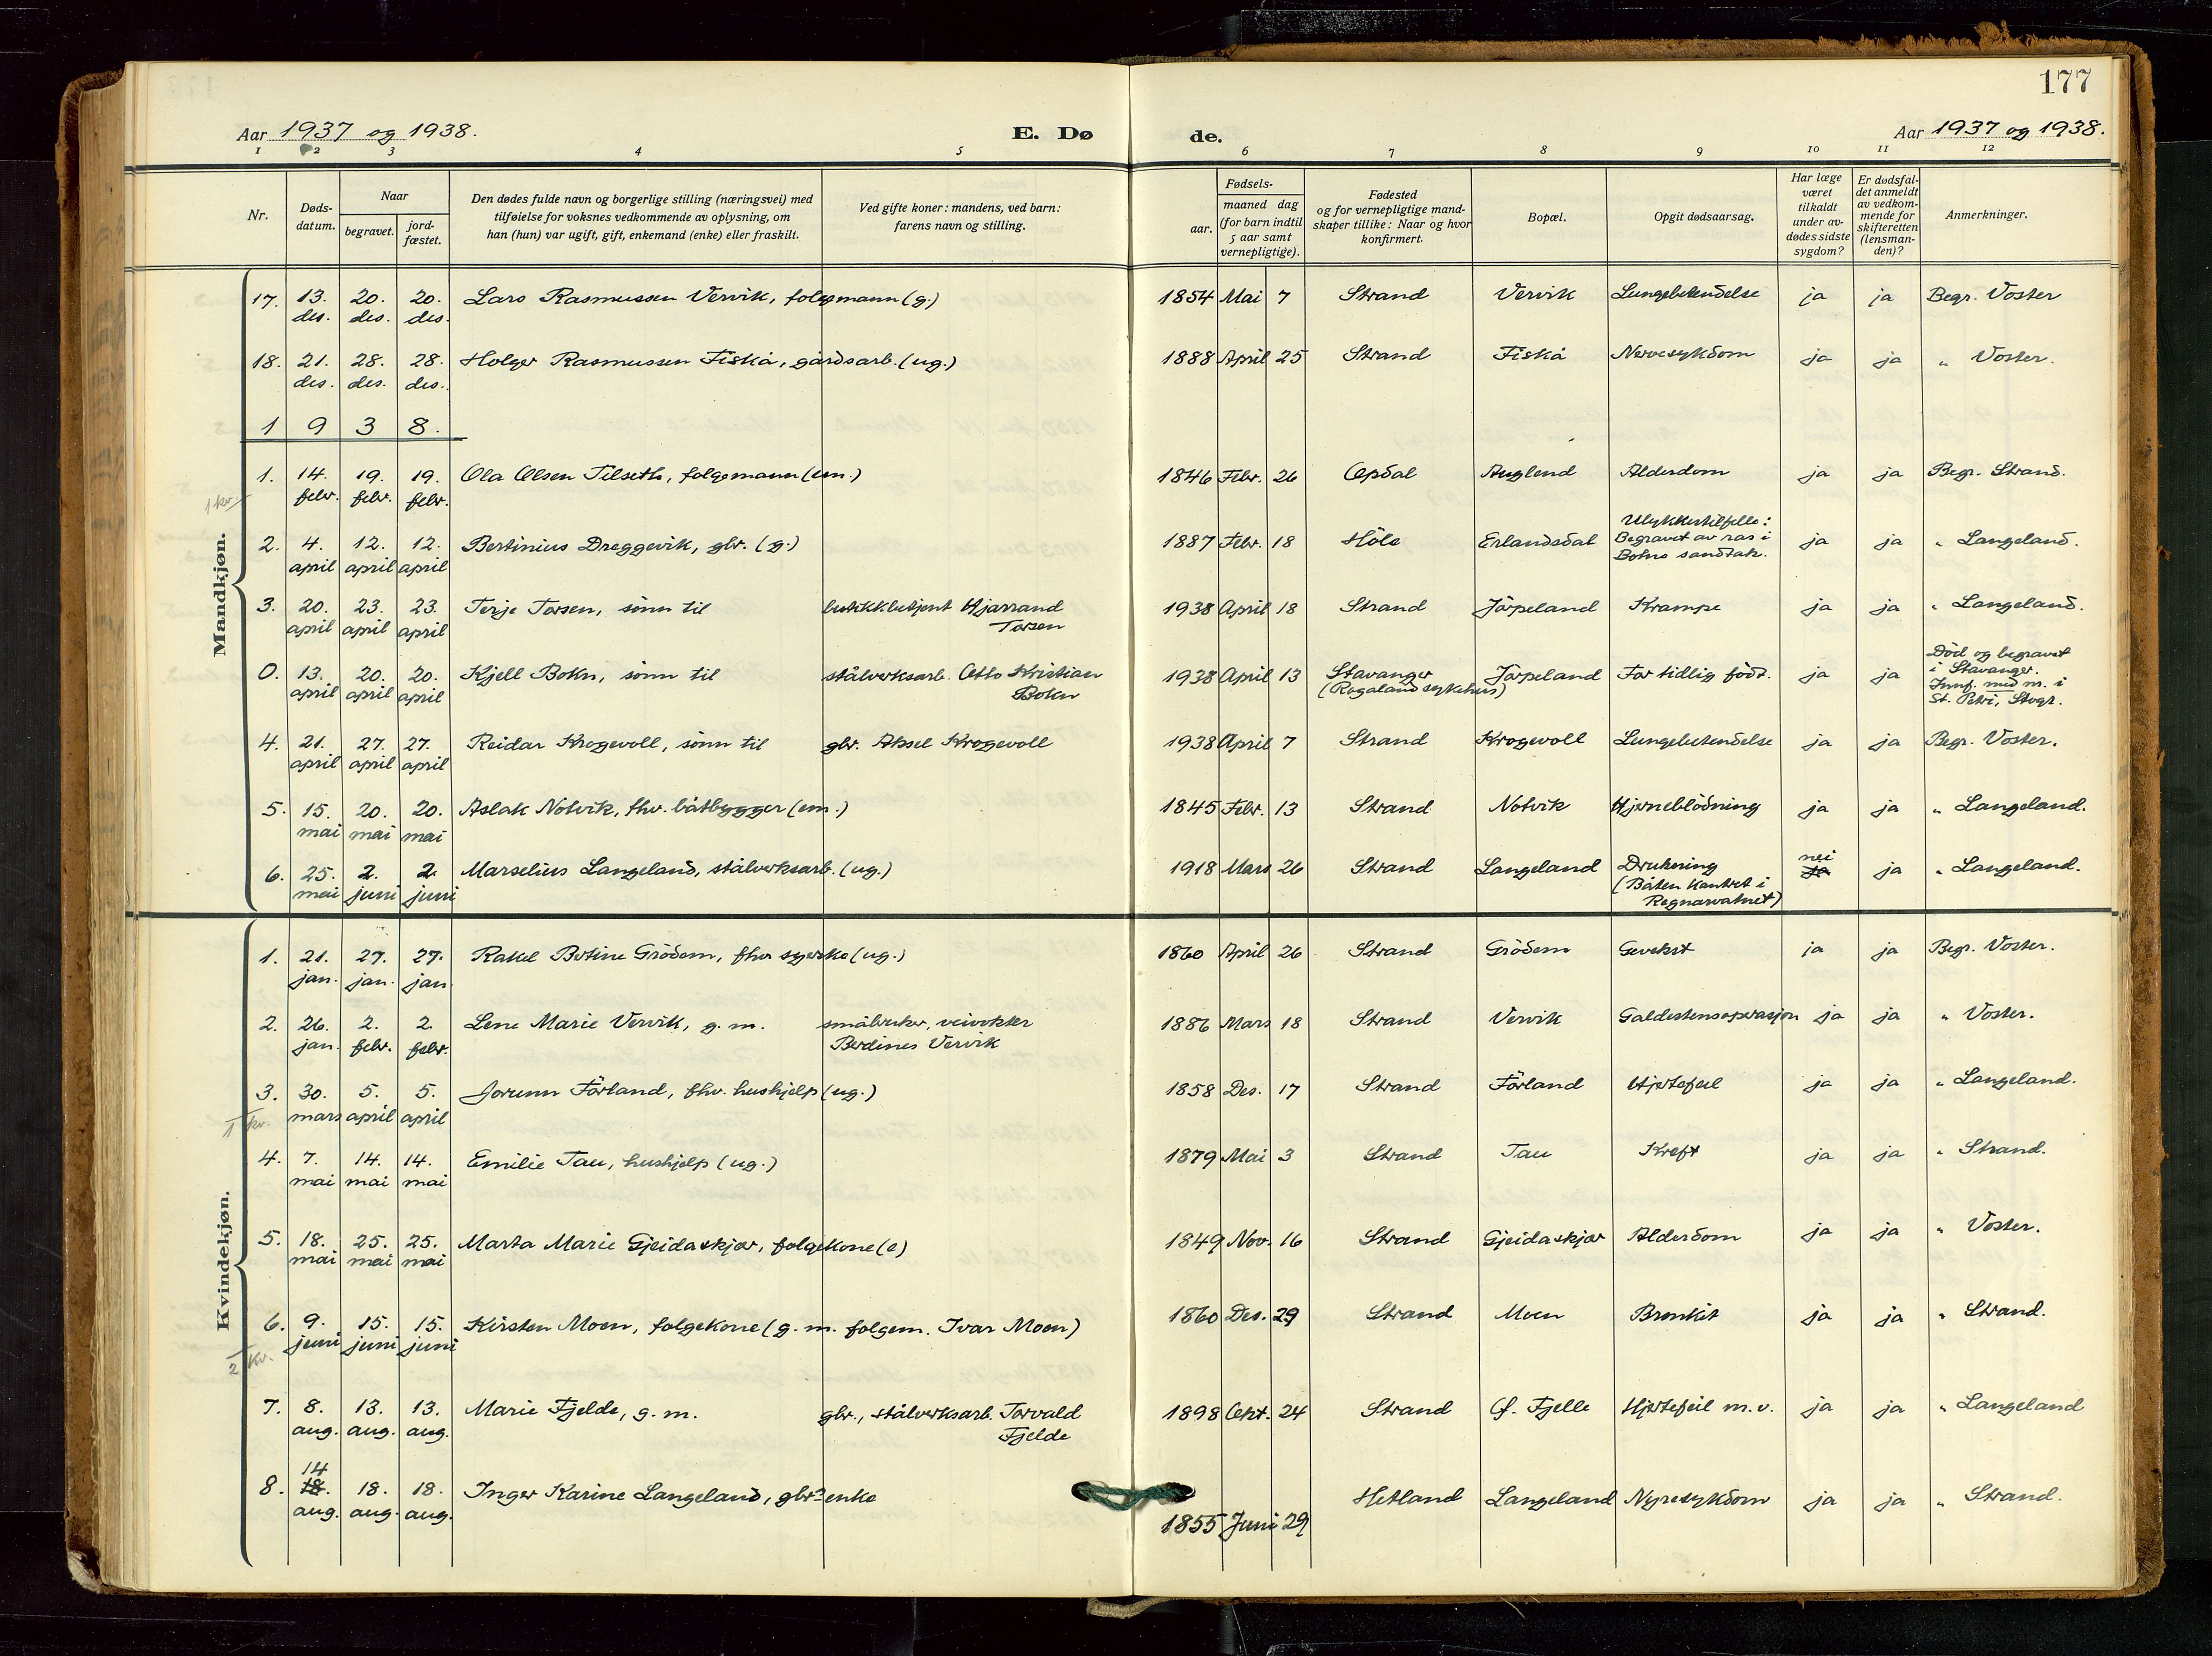 177
Aar 1937 og 1938. E. Dø de. Aar 1937 og 1938.
1 2 3 4 5 6 7 8 9 10 11 12
Nr. Døds-datum. Naar begravet. jord-fæstet. Den dødes fulde navn og borgerlige stilling (næringsvei) med tilføielse for voksnes vedkommende av oplysning, om han (hun) var ugift, gift, enkemand (enke) eller fraskilt. Ved gifte koner: mandens, ved barn: farens navn og stilling. Fødsels- aar. maaned dag (for barn indtil 5 aar samt vernepligtige). Fødested og for vernepligtige mand-skaper tillike: Naar og hvor konfirmert. Bopæl. Opgit dødsaarsag. Har læge været tilkaldt under av-dødes sidste sygdom? Er dødsfal-det anmeldt av vedkom-mende for skifteretten (lensman-den)? Anmerkninger.
Mandkjøn.
17. 13. des. 20. des. 20. des. Lars Rasmussen Vervik, folgemann (g.) 1854 Mai 7 Strand Vervik Lungebetendelse ja ja Begr. Voster
18. 21. des. 28. des. 28. des. Holger Rasmussen Fiskå, gårdsarb. (ug.) 1888 April 25 Strand Fiskå Nervesykdom ja ja " Voster.
1 9 3 8.
1 kv.
1. 14. febr. 19. febr. 19. febr. Ola Olsen Tilseth, folgemann (em.) 1846 Febr. 26 Opdal Auglend Alderdom ja ja Begr. Strand.
2. 4. april 12. april 12. april Bertinius Dreggevik, gbr. (g.) 1887 Febr. 18 Höle Erlandsdal Ulykkestilfelle: Begravet av ras i Bokns sandtak. ja ja " Langeland.
3. 20. april 23. april 23. april Terje Torsen, sönn til butikkbetjent Hjarrand Torsen 1938 April 18 Strand Jörpeland Krampe ja ja " Langeland.
0. 13. april 20. april 20. april Kjell Bokn, sönn til stålverksarb. Otto Kristian Bokn 1938 April 13 Stavanger (Rogaland sykehus) Jörpeland For tidlig födt. ja ja Död og begravet i Stavanger. Innf. med m. i St. Petri, Stvgr.
4. 21. april 27. april 27. april Reidar Krogevoll, sönn til gbr. Aksel Krogevoll 1938 April 7 Strand Krogevoll Lungebetendelse ja ja Begr. Voster.
5. 15. mai 20. mai 20. mai Aslak Notvik, fhv. båtbygger (em.) 1845 Febr. 13 Strand Notvik Hjerneblödning ja ja " Langeland.
6. 25. mai 2. juni 2. juni Marselius Langeland, stålverksarb. (ug.) 1918 Mars 26 Strand Langeland Drukning (Båten kantret i Regnarvatnet) nei ja ja " Langeland.
Kvindekjøn.
1. 21. jan. 27. jan. 27. jan Rakel Bertine Grödem, fhv syerske (ug.) 1860 April 26 Strand Grödem Gvekst ja ja Begr. Voster.
2. 26. jan. 2. febr. 2. febr. Lene Marie Vervik, g. m. småbruker, veivokter Berdines Vervik 1886 Mars 18 Strand Vervik Galdestensoperasjon ja ja " Voster.
3. 30. mars 5. april 5. april Jorunn Förland, fhv. hushjelp (ug.) 1858 Des. 17 Strand Förland Hjertefeil ja ja " Langeland.
1 kv.
4. 7. mai 14. mai 14. mai Emilie Tau, hushjelp (ug.) 1879 Mai 3 Strand Tau Kreft ja ja " Strand.
5. 18. mai 25. mai 25. mai Marta Marie Gjeidaskjær, folgekone (e) 1849 Nov. 16 Strand Gjeidaskjær Alderdom ja ja " Voster.
6. 9. juni 15. juni 15. juni Kirsten Moen, folgekone (g. m. folgem. Ivar Moen) 1860 Des. 29 Strand Moen Bronkit ja ja " Strand.
2 kv.
7. 8. aug. 13. aug. 13. aug. Marie Fjelde, g. m. gbr., stålverksarb. Torvald Fjelde 1898 Okt. 24 Strand Ö. Fjelle Hjertefeil m. v. ja ja " Langeland
8. 14 18. aug. 18. aug. 18. aug. Inger Karine Langeland, gbr.enke 1855 Juni 29 Hetland Langeland Nyresykdom ja ja " Strand.